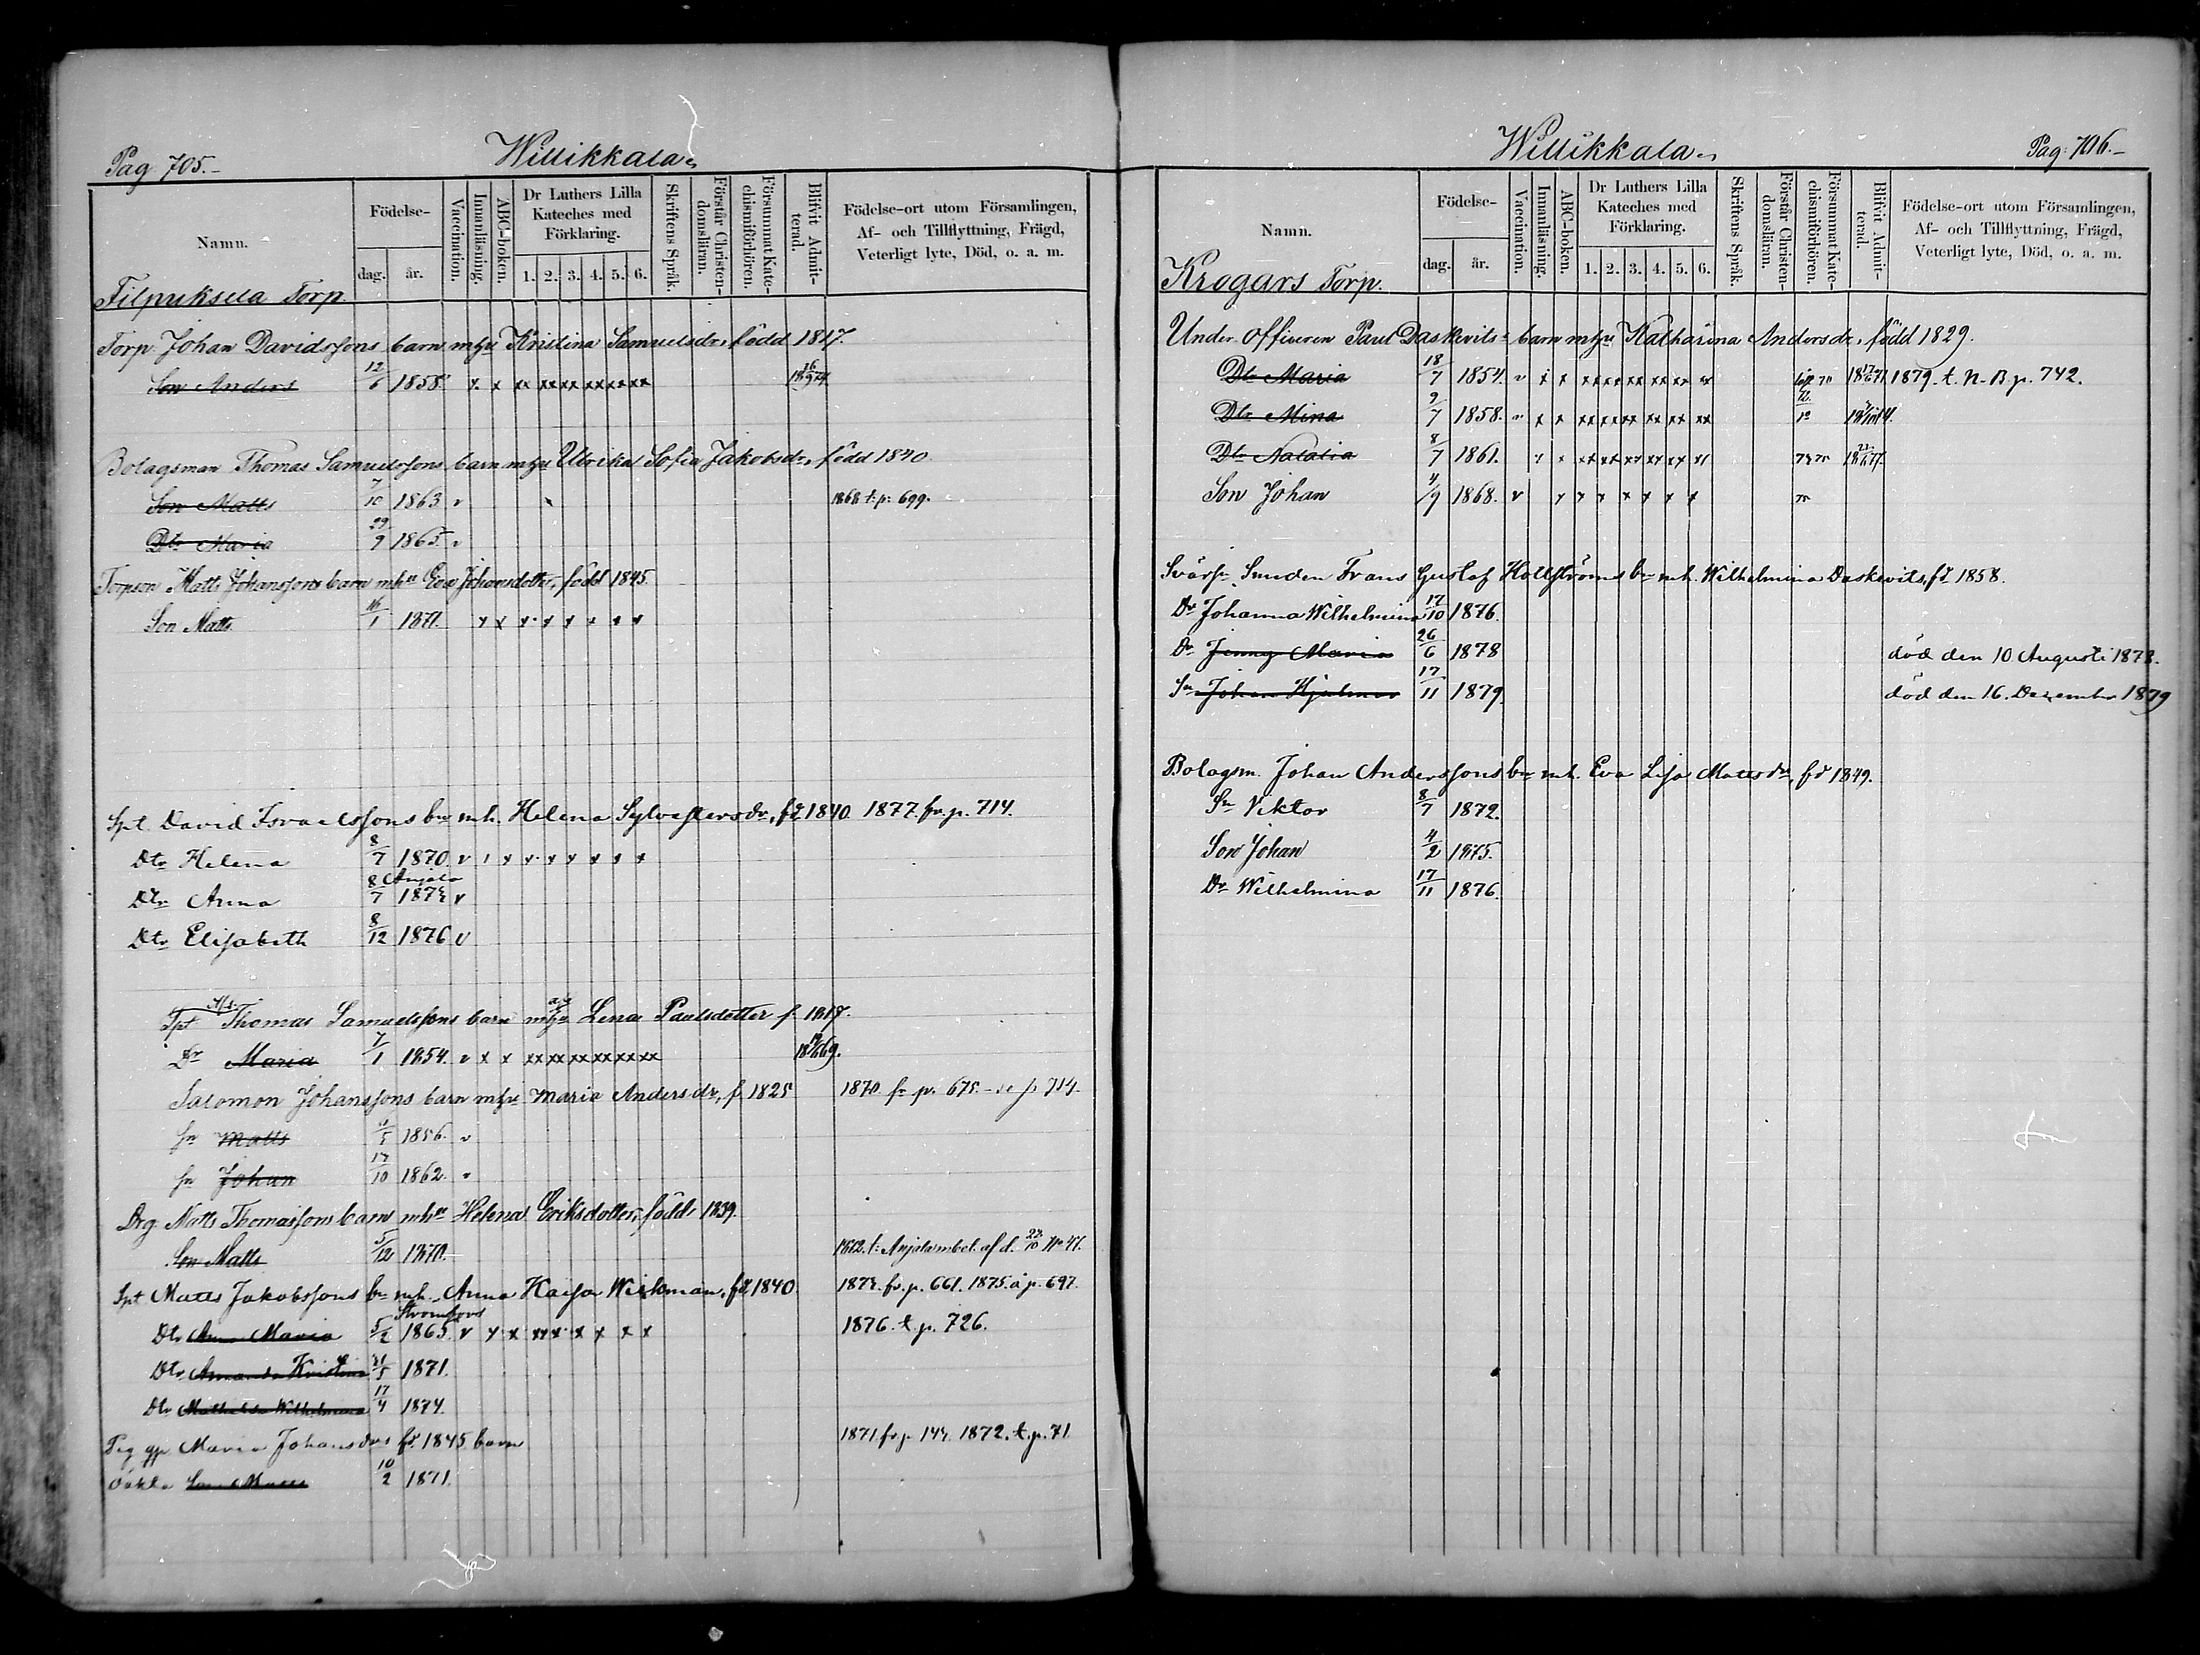 Pag. 705.
Willikkala
Namn.
Födelse-
dag.
år.
Vaccination.
Innanläsning.
ABC-boken.
Dr Luthers Lilla
Kateches med
Förklaring.
1. 2. 3. 4. 5. 6.
Skriftens Språk.
Förstår Christen-
domsläran.
Försummat Kate-
chismiförhören.
Blifvit Admit-
terad.
Födelse-ort utom Församlingen,
Af- och Tillflyttning, Frägd,
Veterligt lyte, Död, o. a. m.
Filpuksela Torp.
Torp. Johan Davidssons barn mhu Kristina Samuelsdr, född 1817.
Son Anders 12/6 1858. x x xx xx xx xx xx xx
Bolagsman Thomas Samuelssons barn mhu Ulrika Sofia Jakobsdr, född 1840.
Son Matts 7/10 1863 v 1868 t. p. 699.
Dtr Maria 29/9 1865. v
Torpson Matts Johanssons barn mhu Eva Johansdotter, född 1845.
Son Matts 16/1 1871. x x x x x x x x
Spt David Israelssons bn mh. Helena Sylvestersdr, fd 1840. 1877. fr. p. 714.
Dtr Helena 8/7 1870. v x x x x x x x x
Anjala
Dtr Anna 8/7 187 v
Dtr Elisabeth 8/12 1876 v
Spt Thomas Samuelssons barn mhu Lena Paulsdotter f. 1817.
Dr Maria 7/1 1854. v x x xx xx xx xx xx xx
Salomon Johanssons barn mhu Maria Andersdr, f. 1825 1870 fr. p. 675. - se p 714.
sn Matts 1856. v
sn Johan 17/10 1862. v
Drg. Matts Thomassons barn mhu Helena Eriksdotter, född 1839.
Son Matts 5/12 1870. 1872. t. Anjala mbet. af d. No 47.
Spt Matts Jakobssons bn mh. Anna Kaisa Wickman, fd 1840. 187 fr. p. 661. 1875. å p. 697.
Strömfors
Dtr Anna Maria 5/2 1865. v x x xx x x x x x 1876. t. p. 726.
Dtr Amanda Kristina 21/5 1871.
Dtr Mathilda Wilhelmina 17/4 1874.
Pig. Maria Johansdrs fd 1845 barn 1871 fr p. 1872. t. p. 71
oäkta Son Matts 10/2 1871.
Willikkala
Pag. 706.
Namn.
Födelse-
dag.
år.
Vaccination.
Innanläsning.
ABC-boken.
Dr Luthers Lilla
Kateches med
Förklaring.
1. 2. 3. 4. 5. 6.
Skriftens Språk.
Förstår Christen-
domsläran.
Försummat Kate-
chismiförhören.
Blifvit Admit-
terad.
Födelse-ort utom Församlingen,
Af- och Tillflyttning, Frägd,
Veterligt lyte, Död, o. a. m.
Krogars Torp.
Under officeren Paul Daskevits' barn mhu Katharina Andersdr, född 1829.
Dtr Maria 18/7 1854. v x x xx xx xx xx xx xx 1879. t. N. B. p. 742.
Dtr Mina 9/7 1858. v x x xx xx xx xx xx xx
Dtr Natalia 8/7 1861. x x xx xx xx xx xx xx
Son Johan 4/9 1868. v x x x x x x x
Frans Gustaf Hollströms bn mh. Wilhelmina Daskevits, fd 1858.
Dr Johanna Wilhelmina 17/10 1876.
Dr Jenny Maria 26/6 1878 död den 10 Augusti 1878.
Sn Johan Hjalmar 17/11 1879. död den 16. December 1879
Bolagsm. Johan Anderssons bn mh. Eva Lisa Mattsdr, fd 1849.
Sn Viktor 8/7 1872.
Son Johan 4/2 1875.
Dr Wilhelmina 17/11 1876.